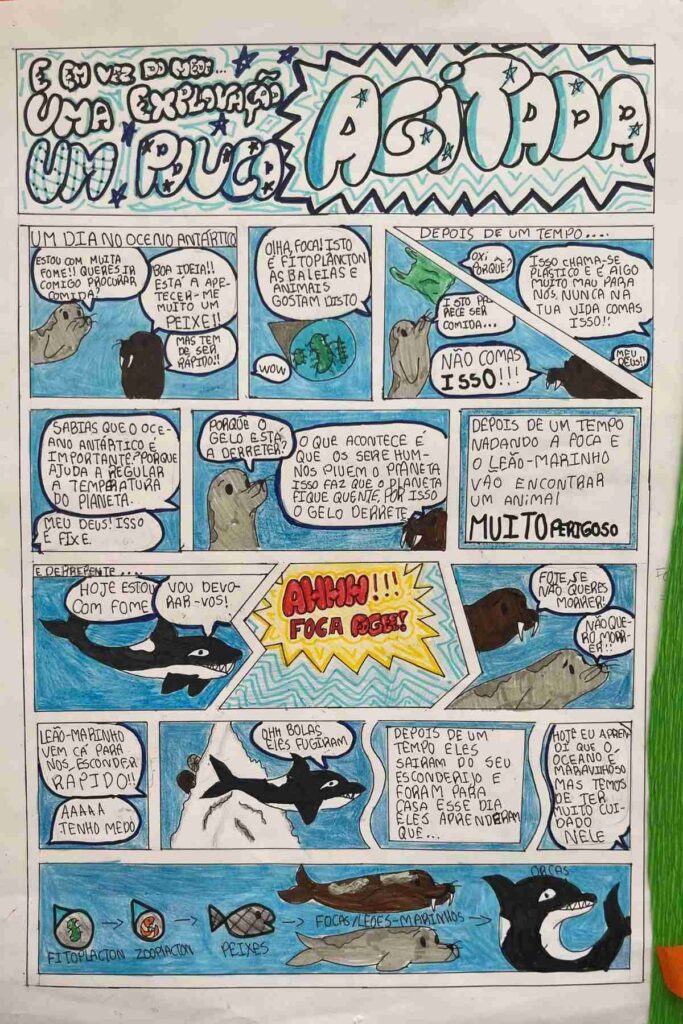 E EM VEZ DO MEDO...
UMA EXPLORAÇÃO
UM POUCO
AGITADA
UM DIA NO OCENO ANTÁRTICO
ESTOU COM MUITA
FOME!! QUERES IR
COMIGO PROCURAR
COMIDA?
BOA IDEIA!!
ESTÁ A APE-
TECER-ME
MUITO UM
PEIXE!!
MAS TEM
DE SER
RÁPIDO!!
OLHA, FOCA! ISTO
É FITOPLÂNCTON
AS BALEIAS E
ANIMAIS
GOSTAM DISTO
WOW
DEPOIS DE UM TEMPO....
OXI
PORQUÊ?
ISTO PA-
RECE SER
COMIDA...
NÃO COMAS
ISSO!!!
ISSO CHAMA-SE
PLÁSTICO E É ALGO
MUITO MAU PARA
NÓS. NUNCA NA
TUA VIDA COMAS
ISSO!!
MEU
DEUS!!
SABIAS QUE O OCE-
ANO ANTÁRTICO É
IMPORTANTE? PORQUE
AJUDA A REGULAR
A TEMPERATURA
DO PLANETA.
MEU DEUS! ISSO
É FIXE.
PORQUE O
GELO ESTÁ
A DERRETER?
O QUE ACONTECE É
QUE OS SERE HUM-
NOS PLUEM O PLANETA
ISSO FAZ QUE O PLANETA
FIQUE QUENTE, POR ISSO
O GELO DERRETE
DEPOIS DE UM TEMPO
NADANDO A FOCA E
O LEÃO-MARINHO
VÃO ENCONTRAR
UM ANIMAL
MUITO PERIGOSO
E DERREPENTE...
HOJE ESTOU
COM FOME
VOU DEVO-
RAR-VOS!
AHHH!!!
FOCA FOGE!!
FOJE, SE
NÃO QUERES
MORRER!
NÃO QUE-
RO MORR-
ER!!
LEÃO-MARINHO
VEM CÁ PARA
NOS ESCONDER
RÁPIDO!!
AAAAA
TENHO MEDO
OHH BOLAS
ELES FUGIRAM
DEPOIS DE UM
TEMPO ELES
SAIRAM DO SEU
ESCONDERIJO E
FORAM PARA
CASA ESSE DIA
ELES APRENDERAM
QUE...
HOJE EU APREN
DI QUE O
OCEANO É
MARAVILHOSO
MAS TEMOS
DE TER
MUITO CUI-
DADO
NELE
FITOPLACTON
ZOOPLACTON
PEIXES
FOCAS/LEÕES-MARINHOS
ORCAS